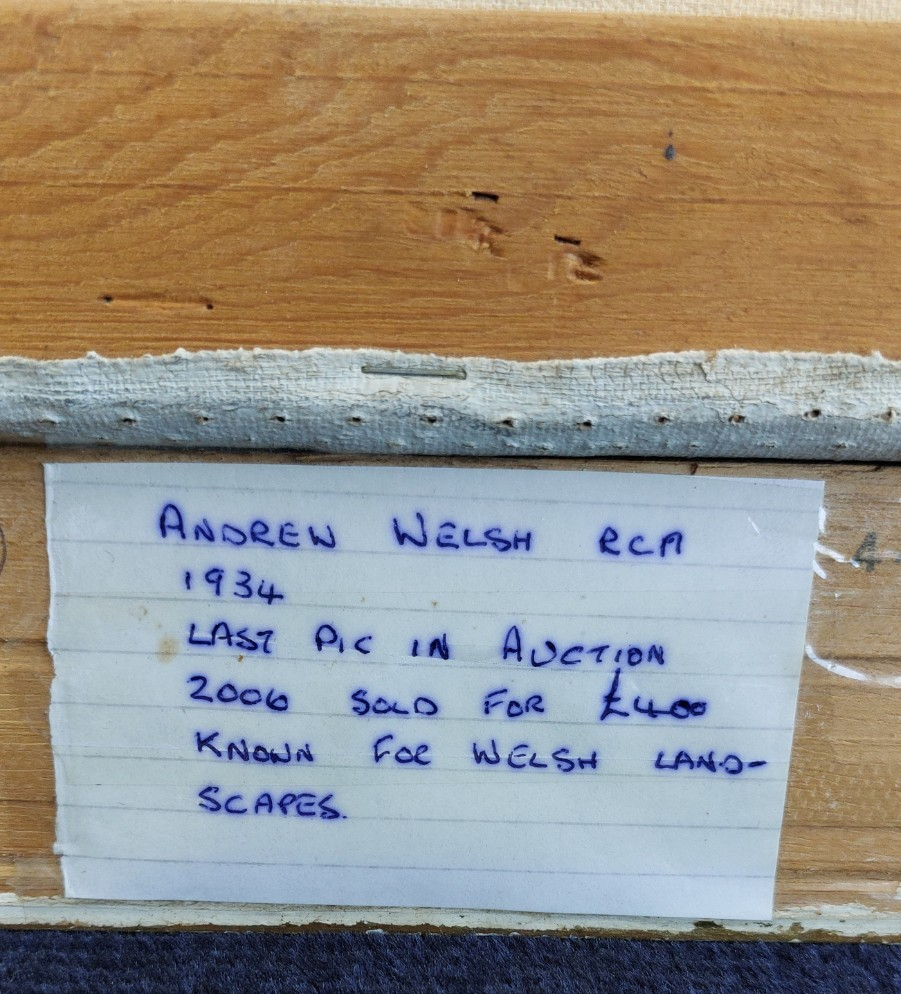 ANDREW WELSH RCA
1934
LAST PIC IN AUCTION
2006 SOLD FOR £400
KNOWN FOR WELSH LAND-
SCAPES.